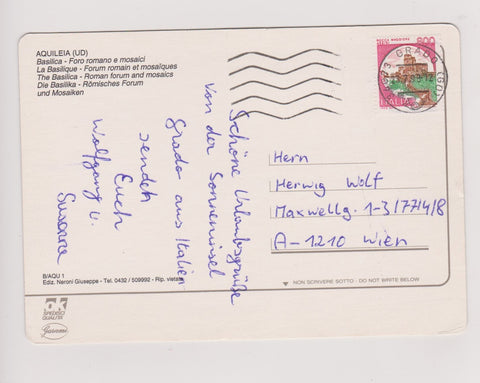 AQUILEIA (UD)
Basilica - Foro romano e mosaici
La Basilique - Forum romain et mosaïques
The Basilica - Roman forum and mosaics
Die Basilika - Römisches Forum
und Mosaiken
800
ITALIA
GRADO (GO)
Schöne Urlaubsgrüße
von der Sonneninsel
Grado aus Italien
sendet
Euch
Wolfgang u.
Susanne
Herrn
Herwig Wolf
Maxwellg. 1-3/7/4/8
A-1210 Wien
B/AQU 1
Ediz. Neroni Giuseppe - Tel. 0432 / 509992 - Rip. vietata
NON SCRIVERE SOTTO - DO NOT WRITE BELOW
OK
SPEDISCI
QUALITÀ